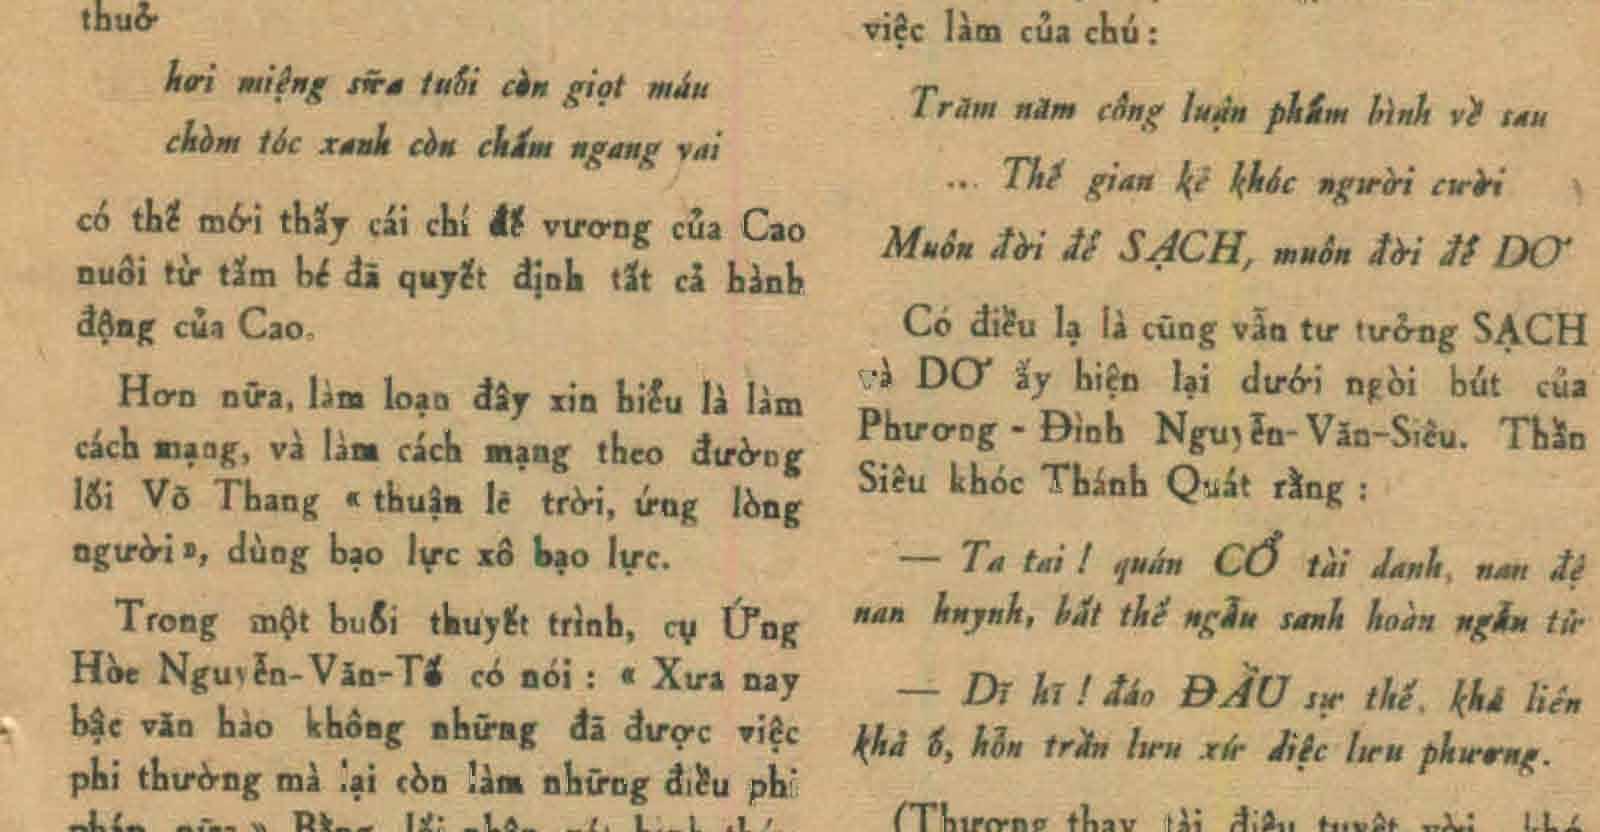 thuở
hơi miệng sữa tuổi còn giọt máu
chòm tóc xanh còn chấm ngang vai
có thể mới thấy cái chí đế vương của Cao
nuôi từ tấm bé đã quyết định tất cả hành
động của Cao.
Hơn nữa, làm loạn đây xin hiểu là làm
cách mạng, và làm cách mạng theo đường
lối Võ Thang « thuận lẽ trời, ứng lòng
người», dùng bạo lực xô bạo lực.
Trong một buổi thuyết trình, cụ Ứng
Hòe Nguyễn-Văn-Tố có nói : « Xưa nay
bậc văn hào không những đã được việc
phi thường mà lại còn làm những điều phi
việc làm của chú :
Trăm năm công luận phẩm bình về sau
... Thế gian kẻ khóc người cười
Muôn đời để SẠCH, muôn đời để DƠ
Có điều lạ là cũng vẫn tư tưởng SẠCH
và DƠ ấy hiện lại dưới ngòi bút của
Phương - Đình Nguyễn-Văn-Siêu. Thần
Siêu khóc Thánh Quát rằng :
— Ta tai ! quán CỔ tài danh, nan đệ
nan huynh, bất thế ngẫu sanh hoàn ngẫu tử
— Dĩ hĩ ! đáo ĐẦU sự thế, khả liên
khả ố, hỗn trần lưu xứ diệc lưu phương.
(Thương thay tài điệu tuyệt vời,